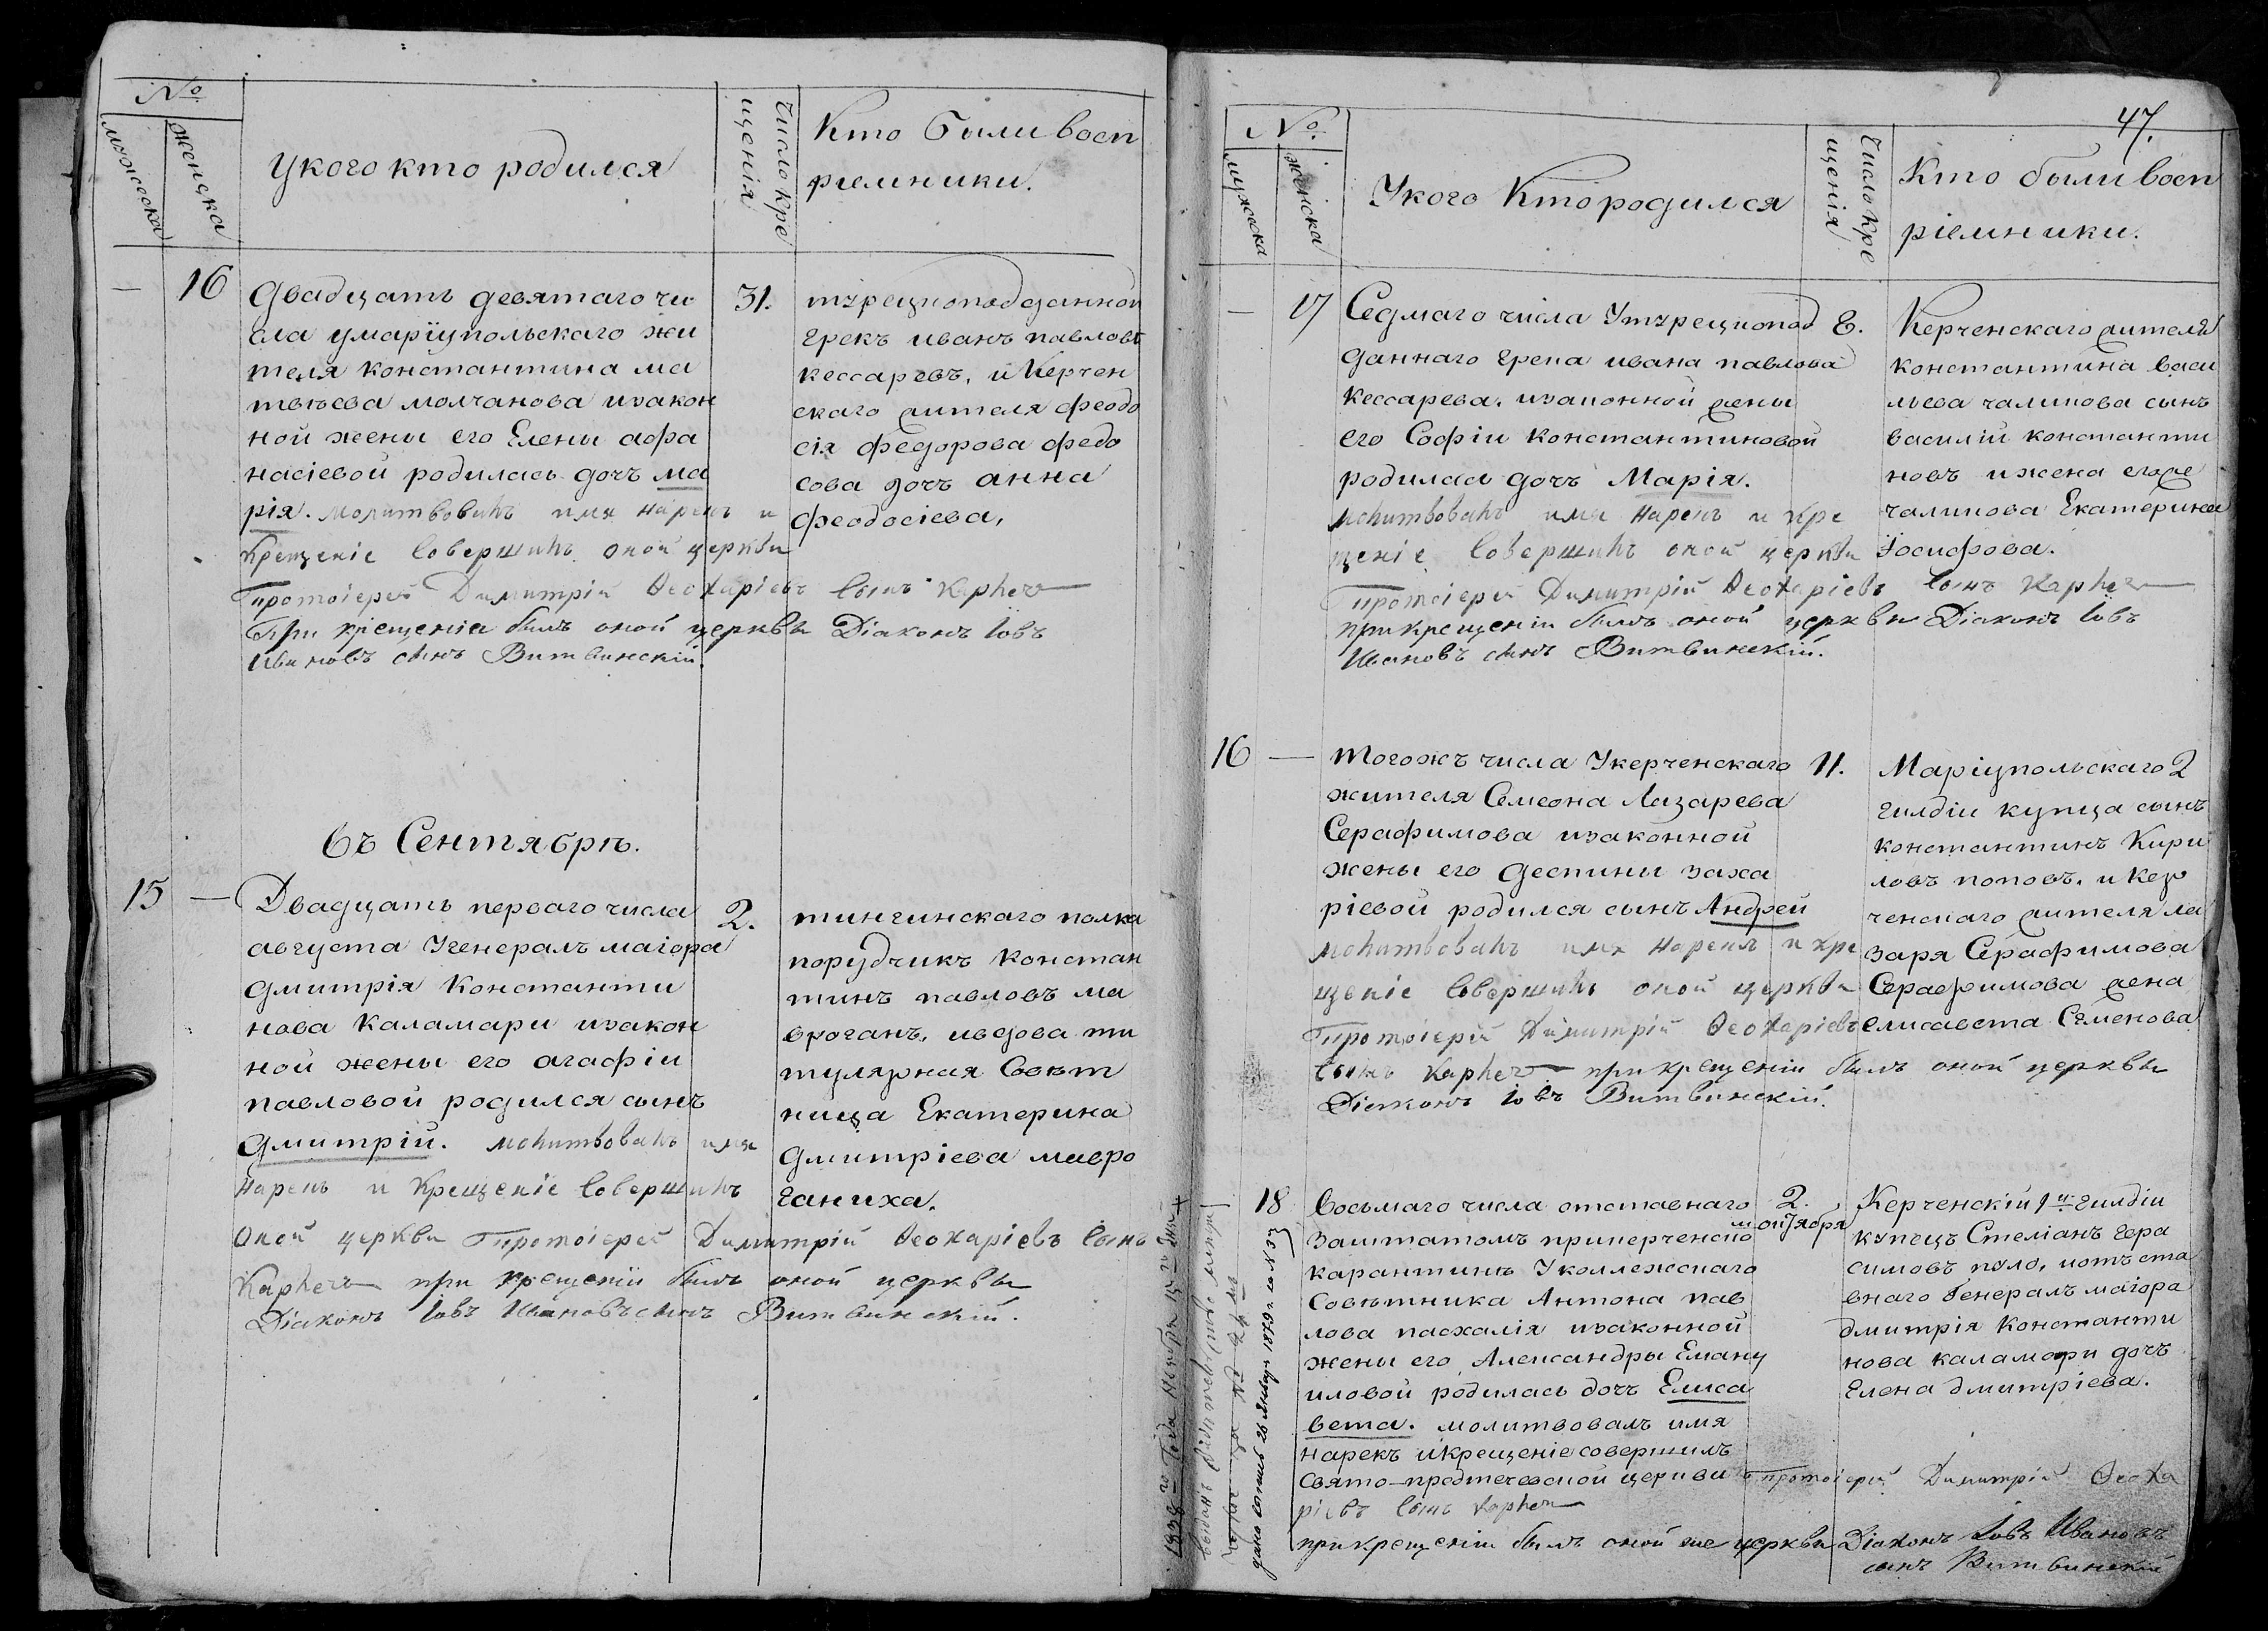 №
мужеска
женска
У кого кто родился
Число Кре
щенія
Кто были восп
ріемники.
16
Двадцать девятаго чи
сла у маріупольскаго жи
теля константина ма
твѣева молчанова изакон
ной жены его Елены афа
насіевой родилась дочь ма
рія. молитвовалъ имя нарекъ и
Крещеніе Совершилъ оной церкви
Протоіерей Димитрій Ѳеохаріевъ Сынъ
При крещеніи былъ оной церкви Діаконъ Іовъ
Ивановъ сынъ Витвинскій.
31.
турецкоподданной
грекъ иванъ павловъ
кессаревъ, и Керчен
скаго жителя феодо
сія федорова федо
сова дочь анна
феодосіева,
Въ Сентябрѣ.
15
Двадцать перваго числа
августа У генералъ маіора
Дмитрія Константи
нова Каламари изакон
ной жены его агафіи
павловой родился сынъ
Дмитрій. молитвовалъ имя
Нарекъ и Крещеніе Совершилъ
Оной церкви Протоіерей Димитрій Ѳеохаріевъ Сынъ
при крещеніи былъ оной церкви
Діаконъ Іовъ Ивановъ сынъ Витвинскій.
2.
тингинскаго полка
порудчикъ Констан
тинъ павловъ ма
вроганъ, ивдова ти
тулярная Совѣт
ница Екатерина
Дмитріева мавро
ганиха.
47.
№
мужеска
женска
У кого Кто родился
Число Кре
щенія
Кто были восп
ріемники.
17
Седмаго числа У турецкопод
даннаго грека ивана павлова
Кессарева. изаконной жены
его Софіи Константиновой
родилась дочь Марія.
молитвовалъ имя Нарекъ и Кре
щеніе Совершилъ оной церкви
Протоіерей Димитрій Ѳеохаріевъ Сынъ
при крещеніи былъ оной церкви Діаконъ Іовъ
Ивановъ сынъ Витвинскій.
Керченскаго жителя
константина васи
льева чалипова сынъ
василій константи
новъ и жена его же
чалипова Екатерина
Іосифова.
16
Тогожъ числа У керченскаго
жителя Семеона Лазарева
Серафимова изаконной
жены его Деспины заха
ріевой родился сынъ Андрей
молитвовалъ имя Нарекъ и Кре
щеніе Совершилъ оной церкви
Протоіерей Димитрій Ѳеохаріевъ
Сынъ при крещеніи былъ оной церкви
Діаконъ Іовъ Витвинскій.
11.
Маріупольскаго 2
гилдіи купца сынъ
константинъ Кири
ловъ поповъ. и Кер
ченскаго жителя ла
заря Серафимова
Серафимова жена
елисавета Семенова
18
Восьмаго числа отставнаго
заштатомъ прикерченско
карантинѣ У коллежскаго
Совѣтника Антона пав
лова пасхалія изаконной
жены его Александры Еману
иловой родилась дочь Елиса
вета. молитвовалъ имя
нарекъ и крещеніе совершилъ
Свято-предтечевской церкви Протоіерей Димитрій Ѳеоха
ріевъ Сынъ
при крещеніи былъ оной же церкви Діаконъ Іовъ Ивановъ
сынъ Витвинскій
2.
ноября
Керченскій 1й гилдіи
купецъ Стеліанъ Гера
симовъ пуло, иотъста
внаго Генералъ маіора
дмитрія Константи
нова каламари дочь
Елена дмитріева.